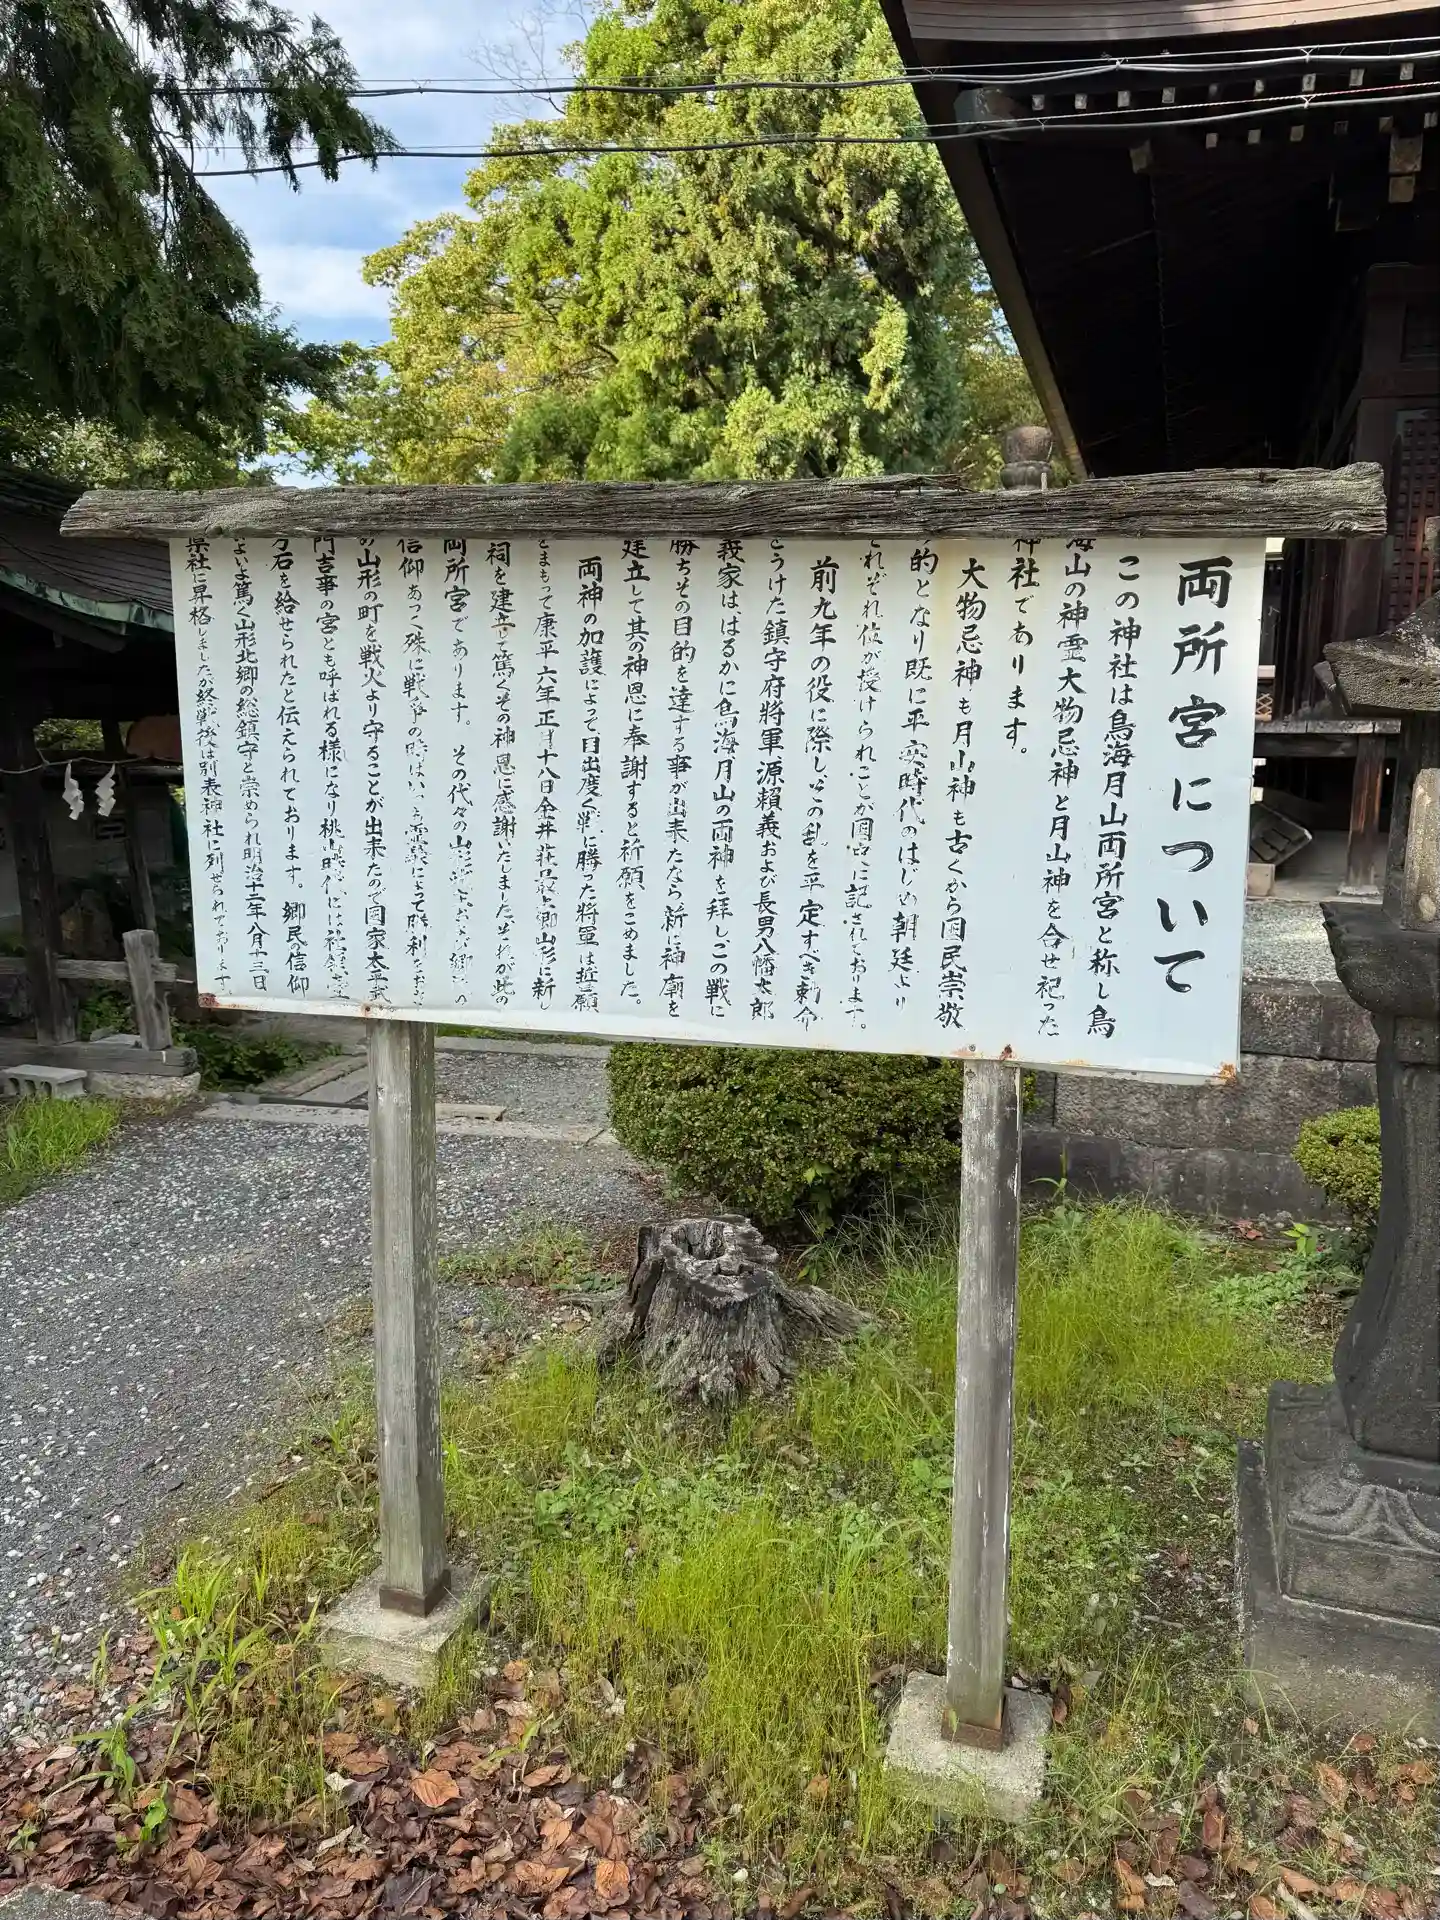 両所宮について
この神社は鳥海月山両所宮と称し鳥
海山の神霊大物忌神と月山神を合せ祀った
神社であります。
大物忌神も月山神も古くから国民崇敬
的となり既に平安時代のはじめ朝廷より
それぞれ位が授けられことが国史に記されております。
前九年の役に際しこの乱を平定すべき勅命
をうけた鎮守府将軍源頼義および長男八幡太郎
義家は、はるかに鳥海月山の両神を拝しこの戦に
勝ちその目的を達する事が出来たなら新に神廟を
建立して其の神恩に奉謝すると祈願をこめました。
両神の加護によって目出度く戦に勝った将軍は誓願
をまもって康平六年正月十八日金井荘最上郷山形に新し
祠を建立して篤くその神恩に感謝いたしました、それが此の
両所宮であります。その代々の山形および郷の
信仰あつく殊に戦争の時はいつも霊験によって勝利をおさ
山形の町を戦火より守ることが出来たので国家太平
門吉事の宮とも呼ばれる様になり桃山時代には社領
石を給せられたと伝えられております。郷民の信仰
いよいよ篤く山形北郷の総鎮守と崇められ明治十二年八月十三日
県社に昇格しましたが終戦後は別表神社に列せられております。